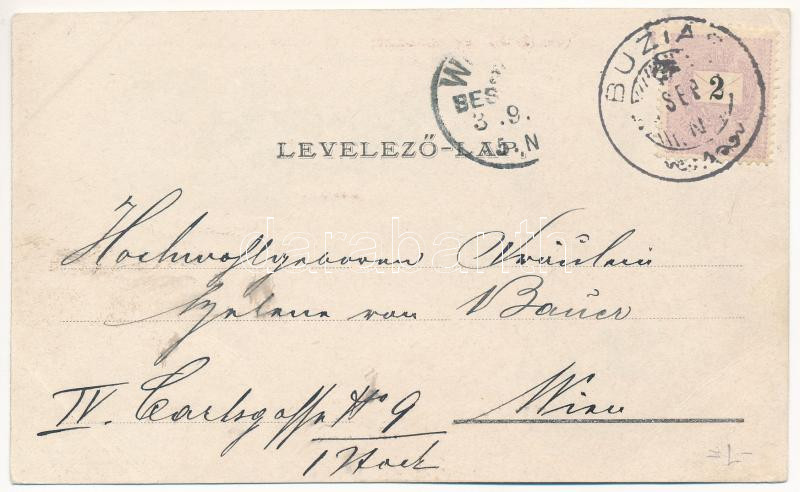 BUZIÁS
SEP 2
BES
3 .9.
5-.N
LEVELEZŐ-LAP.
darabanth
Hochwohlgeboren Fräulein
Helene von Bauer
IV. Carlsgasse No 9 Wien
1 Stock